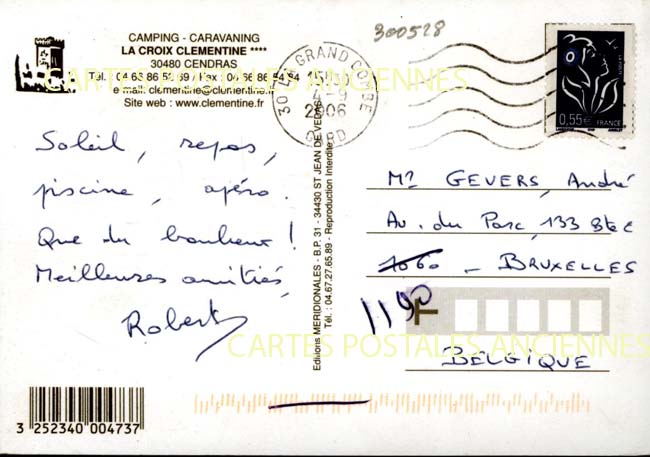 CAMPING - CARAVANING
LA CROIX CLEMENTINE ****
30480 CENDRAS
e mail: clementine@clementine.fr
Site web : www.clementine.fr
CARTES POSTALES ANCIENNES
300528
30 LA GRAND COMBE
2006
GARD
0,55€ FRANCE
Soleil, repos,
piscine, apéro.
Que du bonheur !
Meilleures amitiés,
Robert
Editions MERIDIONALES - B.P. 31 - 34430 ST JEAN DE VEDAS
Tél. : 04.67.27.65.89 - Reproduction Interdite
Mr GEVERS, André
Av. du Parc, 133 Bte
1060 - BRUXELLES
1190
BELGIQUE
CARTES POSTALES ANCIENNES
3 252340 004737